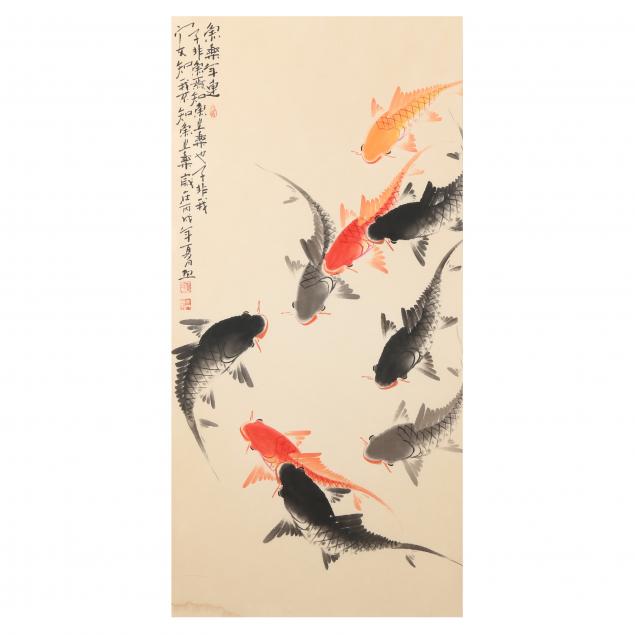 魚樂年連
子非魚焉知魚之樂也子非我
安知我不知魚之樂 歲在丙戌年夏月